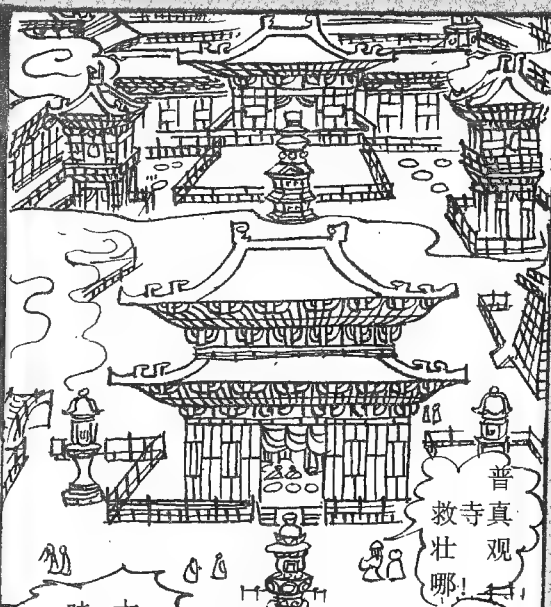 普
救寺真
壮观
哪!